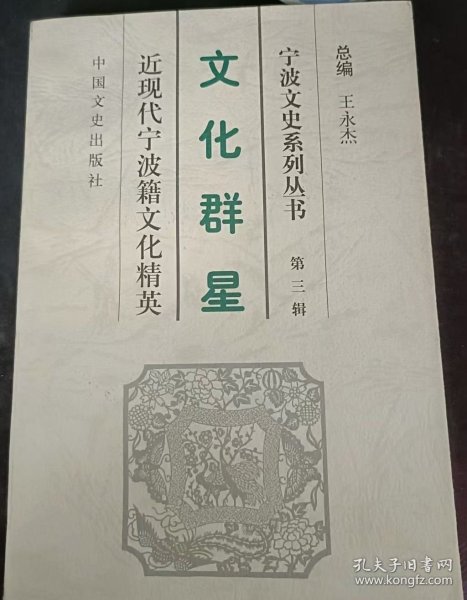 总编 王永杰
宁波文史系列丛书 第三辑
文化群星
近现代宁波籍文化精英
中国文史出版社
孔夫子旧书网
www.kongfz.com